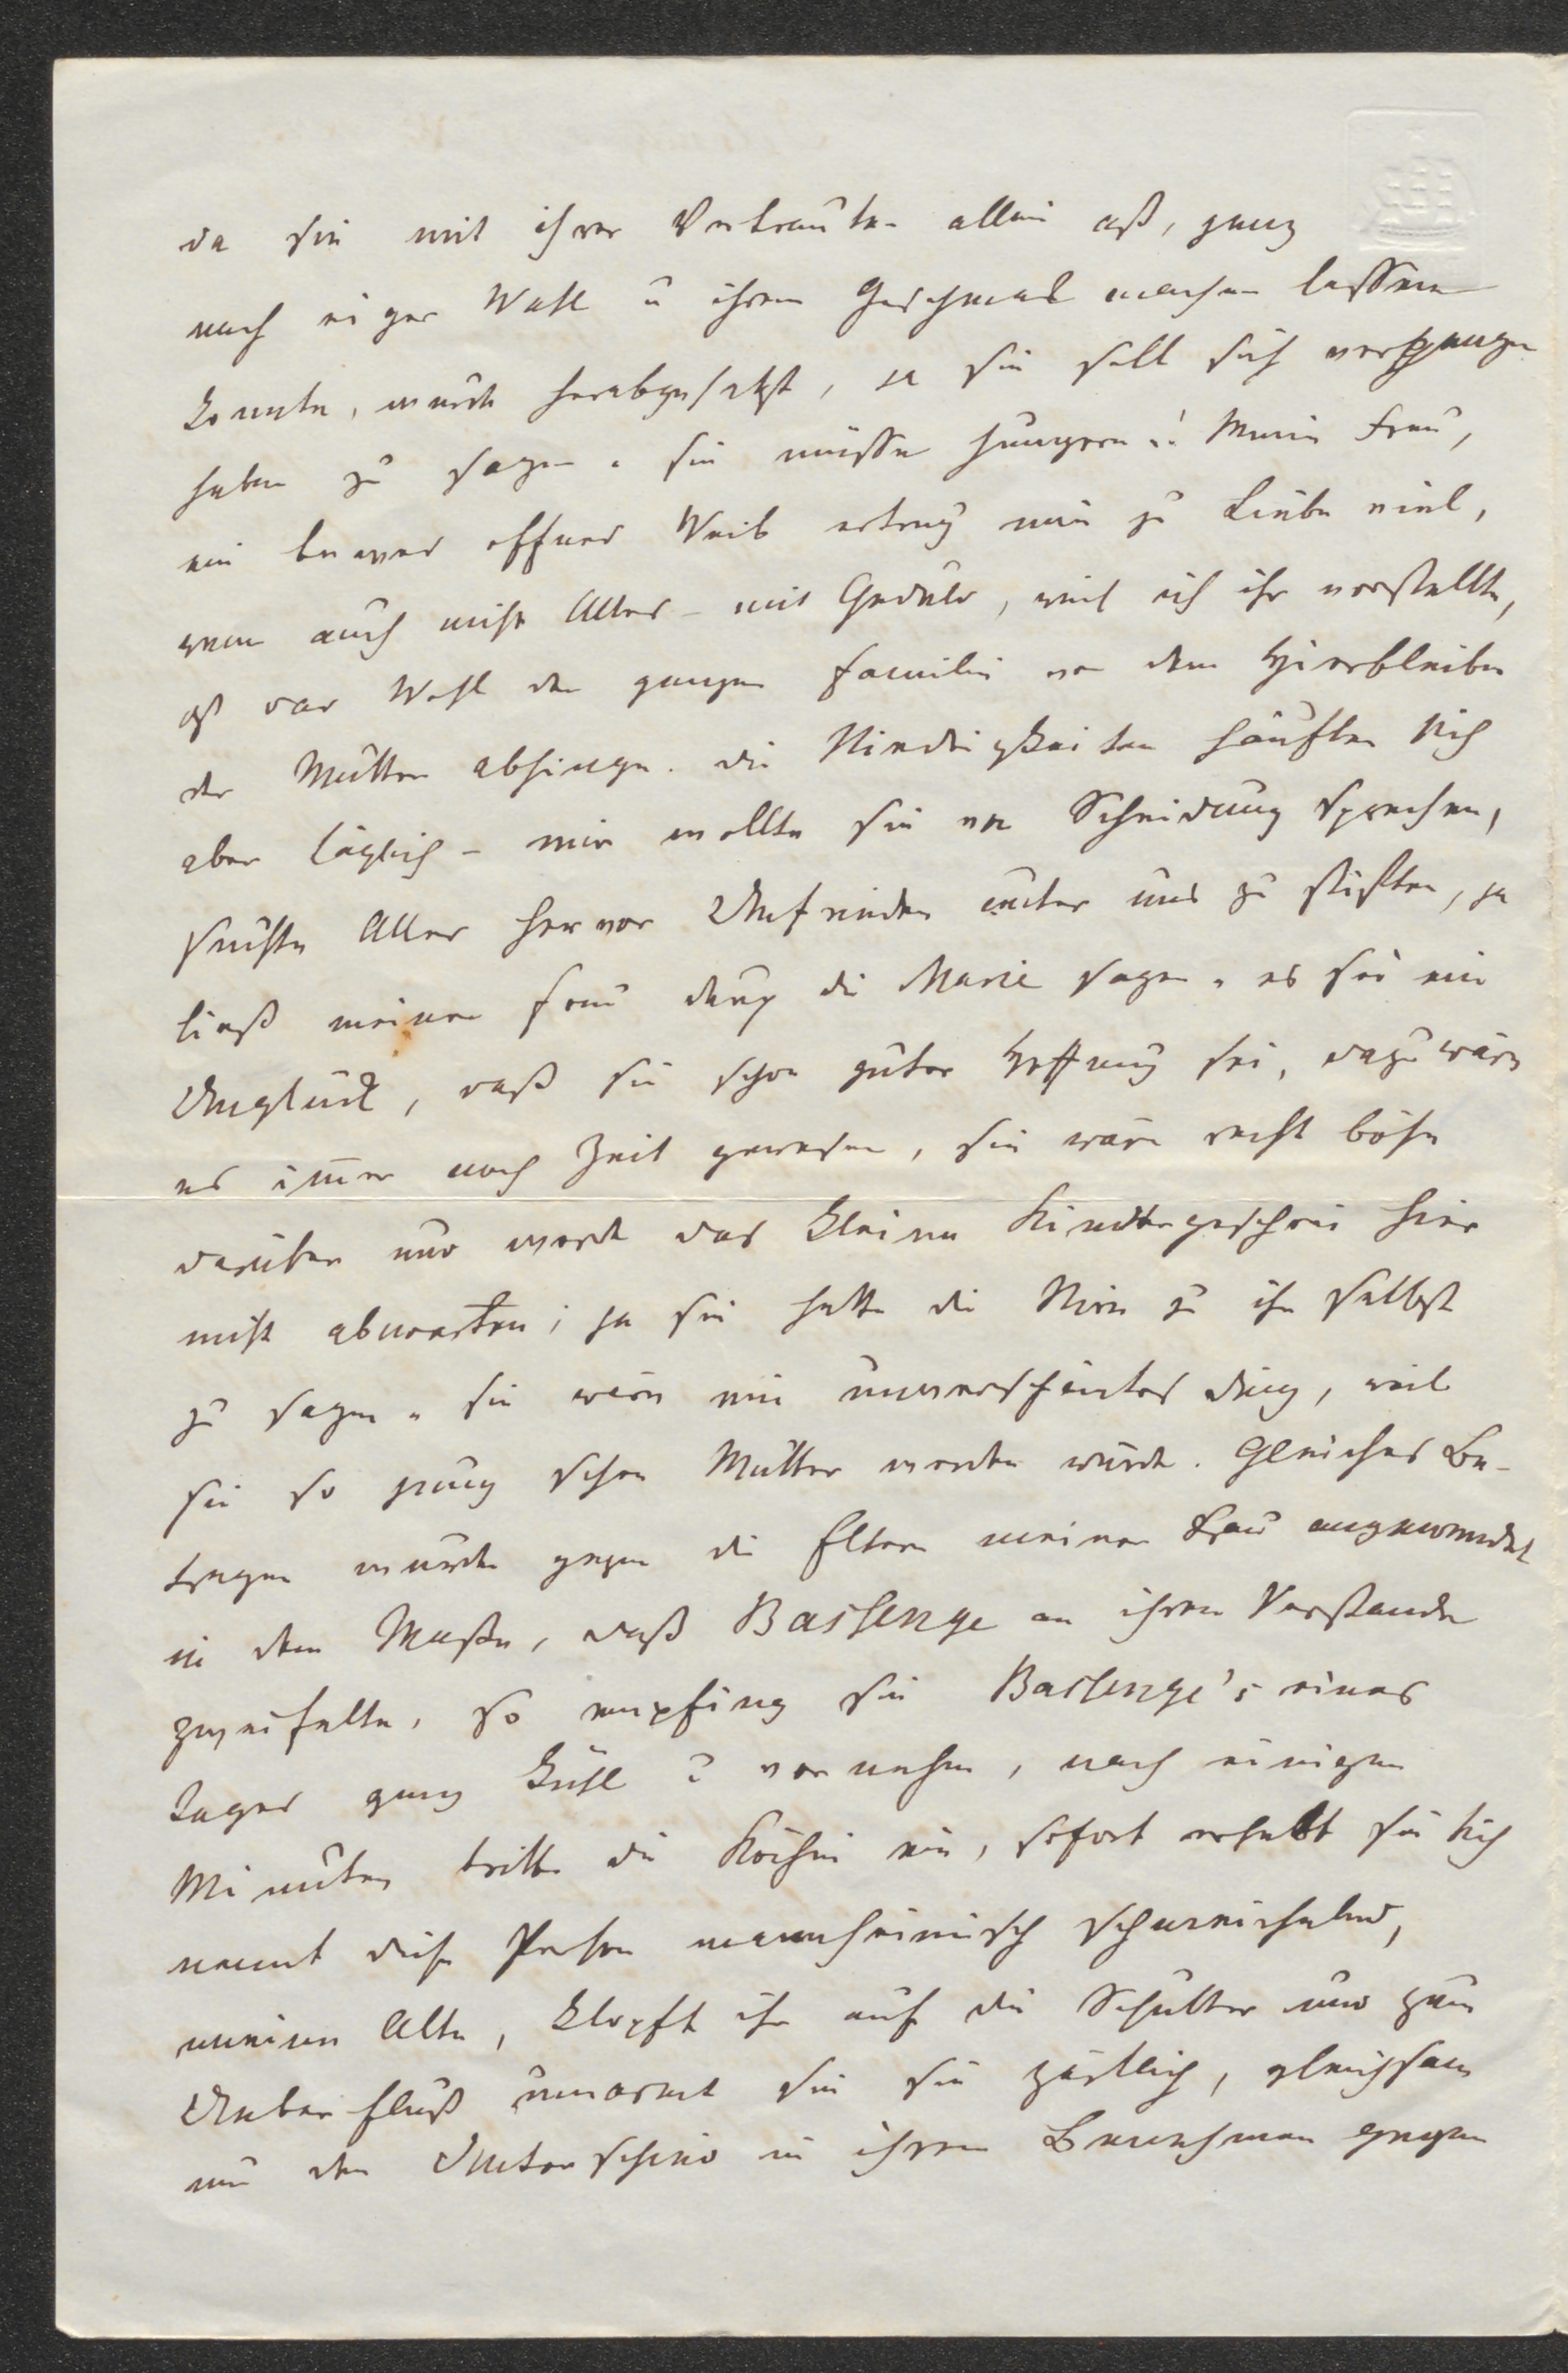 da sie mit ihrer Vertrauten allein aß, ganz
nach eigner Wahl u ihrem Geschmack machen lassen
konnte, wurde herabgesetzt, ja sie soll sich
haben zu sagen „ sie müsse hungern"! Meine Frau,
ein braves offnes Weib ertrug mir zu Liebe viel,
wenn auch nicht Alles – mit Geduld, weil ich ihr vorstellte,
daß das Wohl der ganzen Familie von dem Hierbleiben
der Mutter abhinge. Die Niedrigkeiten häuften sich
aber täglich – mir wollte sie von Scheidung sprechen,
suchte Alles hervor Unfrieden unter uns zu stiften, ja
ließ meiner Frau durch die Marie sagen „ es sei ein
Unglück, daß sie schon guter Hoffnung sei, dazu wäre
es im̄er noch Zeit gewesen, sie wäre recht böse
darüber und werde das kleine Kindergeschrei hier
nicht abwarten; ja sie hatte die Stirn zu ihr selbst
zu sagen „ sie wäre ein unverschämtes Ding, weil
sie so jung schon Mutter werden würde. Gleiches Be-
tragen wurde gegen die Eltern meiner Frau angewendet
in dem Maße, daß Bassenge an ihrem Verstande
zweifelte, so empfing sie Bassenge's eines
Tages ganz kühl u vornehm, nach einigen
Minuten tritt die Köchin ein, sofort erhebt sie sich
nennt diese Person schmeichelnd,
meine Alte, klopft ihr auf die Schulter und zum
Ueberfluß umarmt sie sie zärtlich, gleichsam
um den Unterschied in ihrem Benehmen gegen